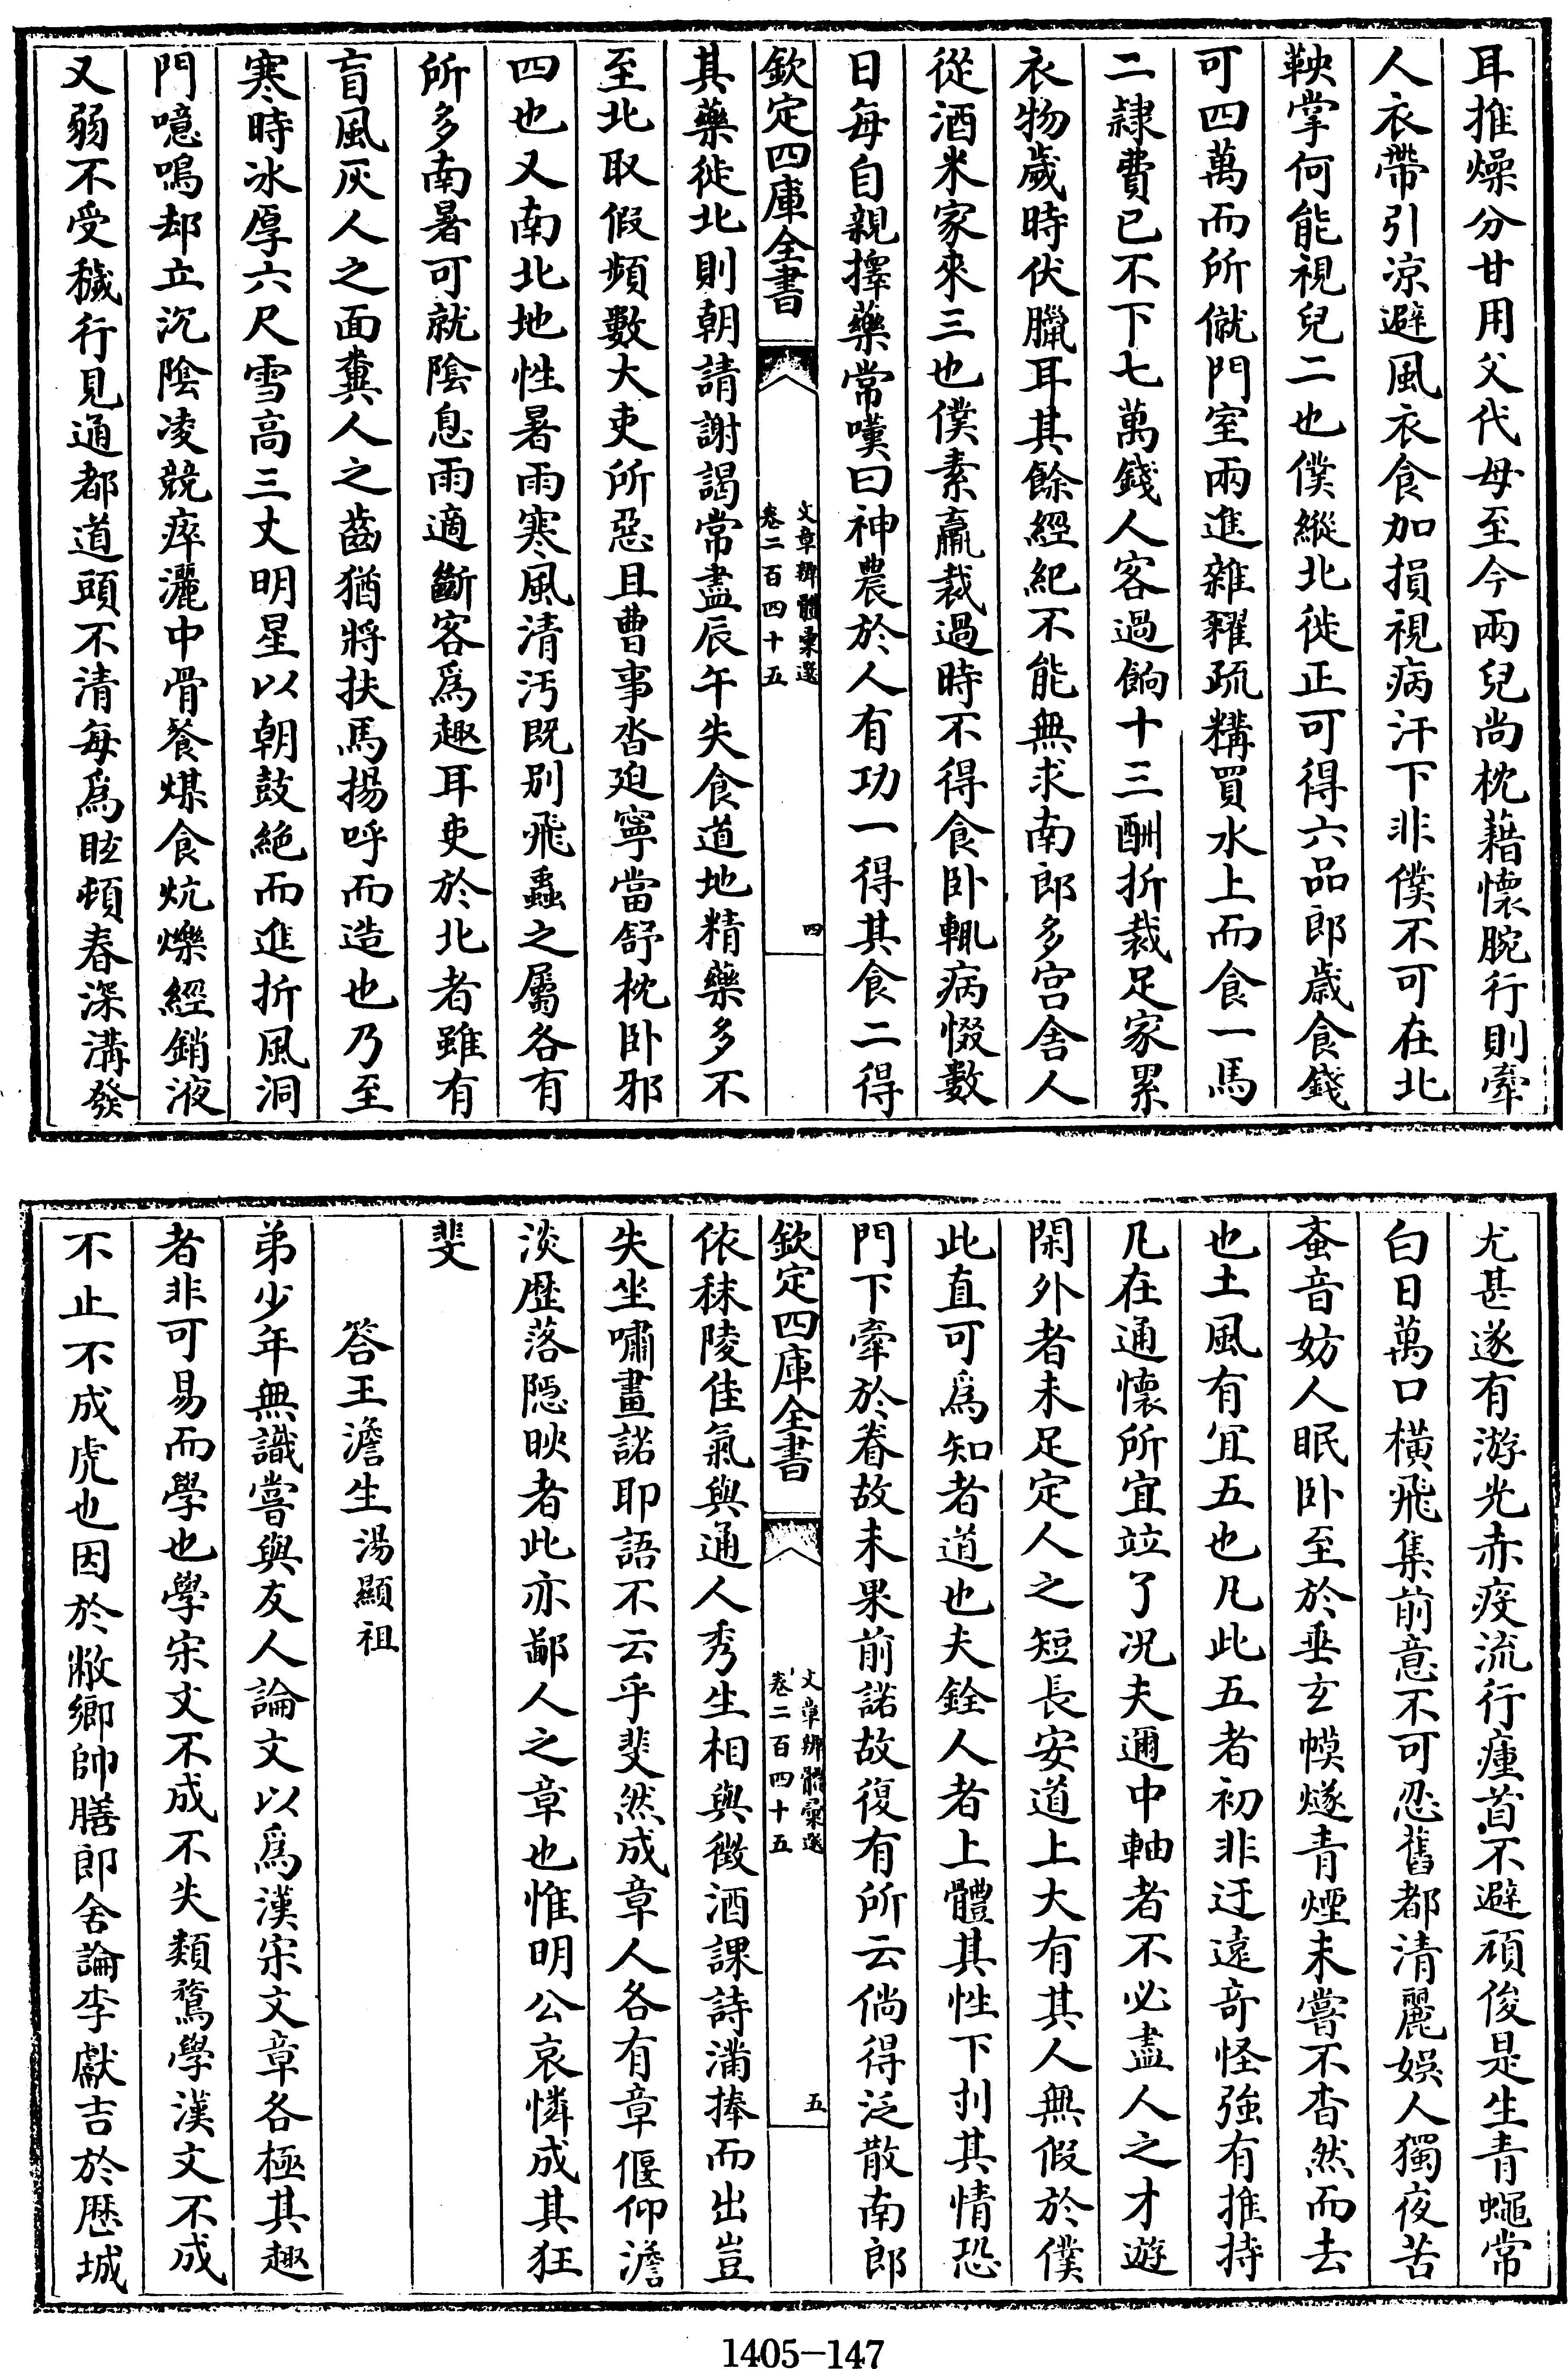 耳推燥分甘用父代母至今兩兒尚枕藉懷腕行則牽
人衣帶引凉避風衣食加損視病汗下非僕不可在北
鞅掌何能視兒二也僕縱北徙正可得六品郎歲食錢
可四萬而所僦門室兩進雜糴疏糒買水上而食一馬
二隷費已不下七萬錢人客過餉十三酬折裁足家累
衣物歲時伏臘耳其餘經紀不能無求南郎多宫舍人
從酒米家來三也僕素羸裁過時不得食卧輒病惙數
日每自親擇藥常嘆曰神農於人有功一得其食二得
欽定四庫全書
文章辨體彙選
卷二百四十五
四
其藥徙北則朝請謝謁常盡辰午失食道地精藥多不
至北取假頻數大吏所惡且曹事沓廹寧當舒枕卧邪
四也又南北地性暑雨寒風清污既别飛蟲之屬各有
所多南暑可就陰息雨適斷客爲趣耳吏於北者雖有
盲風灰人之面糞人之齒猶將扶馬揚呼而造也乃至
寒時冰厚六尺雪高三丈明星以朝鼓絶而進折風洞
門噫鳴却立沉陰凌競瘁灑中骨餐煤食炕爍經銷液
又弱不受穢行見通都道頭不清每爲眩頓春深溝發
尤甚遂有游光赤疫流行瘇首不避頑俊是生青蠅常
白日萬口横飛集前意不可忍舊都清麗娛人獨夜苦
蚉音妨人眠卧至於垂玄幙燧青煙未嘗不杳然而去
也土風有宜五也凡此五者初非迂遠竒怪強有推持
凡在通懷所宜竝了况夫邇中軸者不必盡人之才遊
閑外者未足定人之短長安道上大有其人無假於僕
此直可爲知者道也夫銓人者上體其性下刌其情恐
門下牽於眷故未果前諾故復有所云倘得泛散南郎
欽定四庫全書
文章辨體彙選
卷二百四十五
五
依秣陵佳氣與通人秀生相與徵酒課詩滿捧而出豈
失坐嘯畫諾耶語不云乎斐然成章人各有章偃仰澹
淡歴落隠映者此亦鄙人之章也惟明公哀憐成其狂
斐
答王澹生湯顯祖
弟少年無識嘗與友人論文以爲漢宋文章各極其趣
者非可易而學也學宋文不成不失類鶩學漢文不成
不止不成虎也因於敝鄉帥膳郎舍論李獻吉於歴城
1405-147